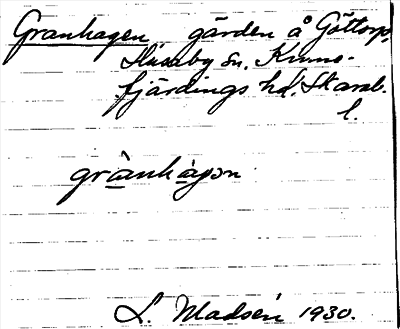 Granhagen gärden å Göttorp,
Husaby sn. Kinne-
fjärdings hd. Skarab.
l.
grànhàgon
L. Madsén 1930.